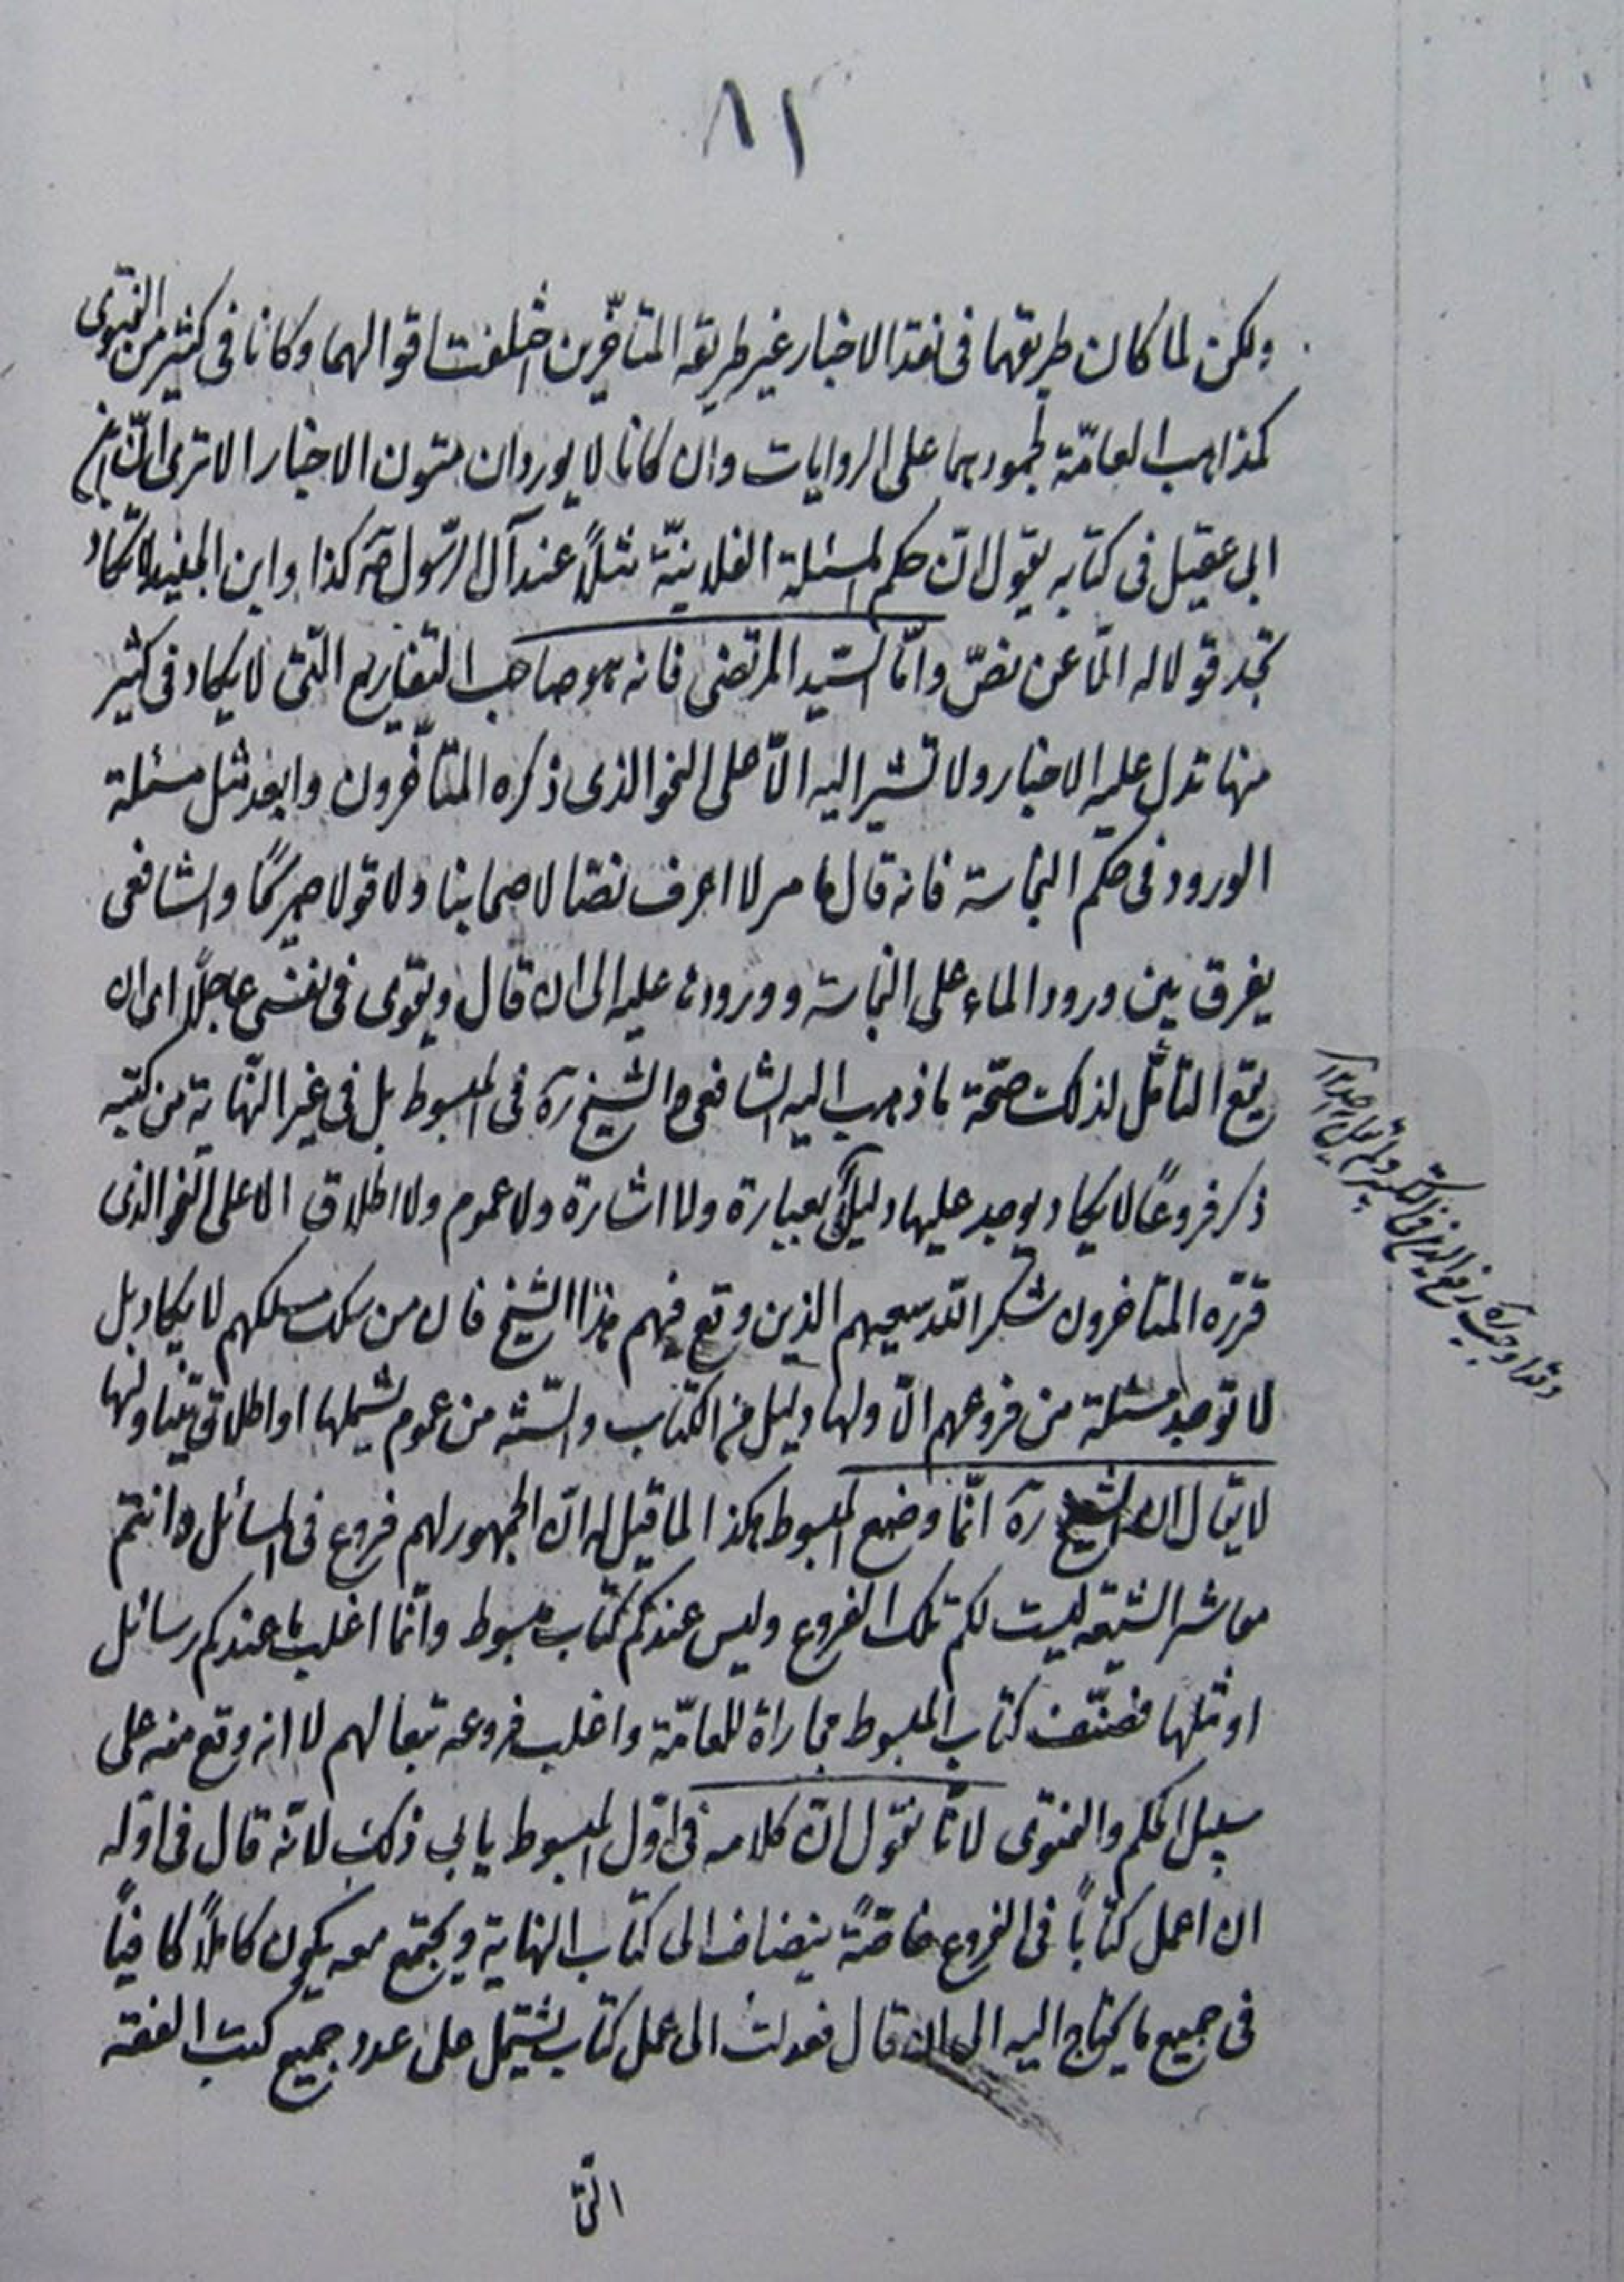 ٨١
ولكن لما كان طريقهما فى نقد الاخبار غير طريقه المتاخّرين اختلفت اقوالهما وكانا فى كثير من الفتوى
كمذاهب العامّة لجمودهما على الروايات وان كانا لا يوردان متون الاخبار الا ترى انّ ابن
ابى عقيل فى كتابه يقول انّ حكم المسئلة الفلانيّة مثلاً عند آل الرّسول صۤ كذا وابن الجنيد لا تكاد
تجد قولا له الّا عن نصّ وامّا السّيد المرتضى فانه هو صاحب التفاريع الّتى لا يكاد فى كثير
منها تدل عليه الاخبار ولا تشير اليه الّا على النحو الذى ذكره المتاخّرون وابعد مثل مسئلة
الورود فى حكم النجاسة فانه قال ما مر لا اعرف نصّا لاصحابنا ولا قولا صريحًا والشافعى
يفرق بين ورود الماء على النجاسة وورودها عليه الى ان قال ويقوى فى نفسى عاجلًا الى ان
يقع التامّل لذلك صحّة ما ذهب اليه الشافعى والشيخ رۤه فى المبسوط بل فى غير النّهاية من كتبه
ذكر فروعًا لا يكاد يوجد عليها دليل بعبارة ولا اشارة ولا عموم ولا اطلاق الا على النحو الذى
قرّره المتاخرون شكر اللّه سعيهم الذين وقع فيهم هذا الشيخ فان من سلك مسلكهم لا يكاد بل
لا توجد مسئلة من فروعهم الّا ولها دليل من الكتاب والسّنّة من عموم يشملها او اطلاق يتناولها
لا يقال ان الشيخ رۤه انّما وضع المبسوط هكذا لما قيل له انّ الجمهور لهم فروع فى المسائل وانتم
معاشر الشيعه ليست لكم تلك الفروع وليس عندكم كتاب مبسوط وانّما اغلب ما عندكم رسائل
او مثلها فصنّف كتاب المبسوط مجاراة للعامّة واغلب فروعه تبعا لهم لا انه وقع منه على
سبيل الحكم والفتوى لانّا نقول انّ كلامه فى اوّل المبسوط يابى ذلك لانّه قال فى اوّله
ان اعمل كتاباً فى الفروع خاصّةً ينضاف الى كتاب النهاية ويجتمع معه يكون كاملًا كافياً
فى جميع ما يحتاج اليه الى ان قال فعدلت الى عمل كتاب يشتمل على عدد جميع كتب الفقه
الّتى